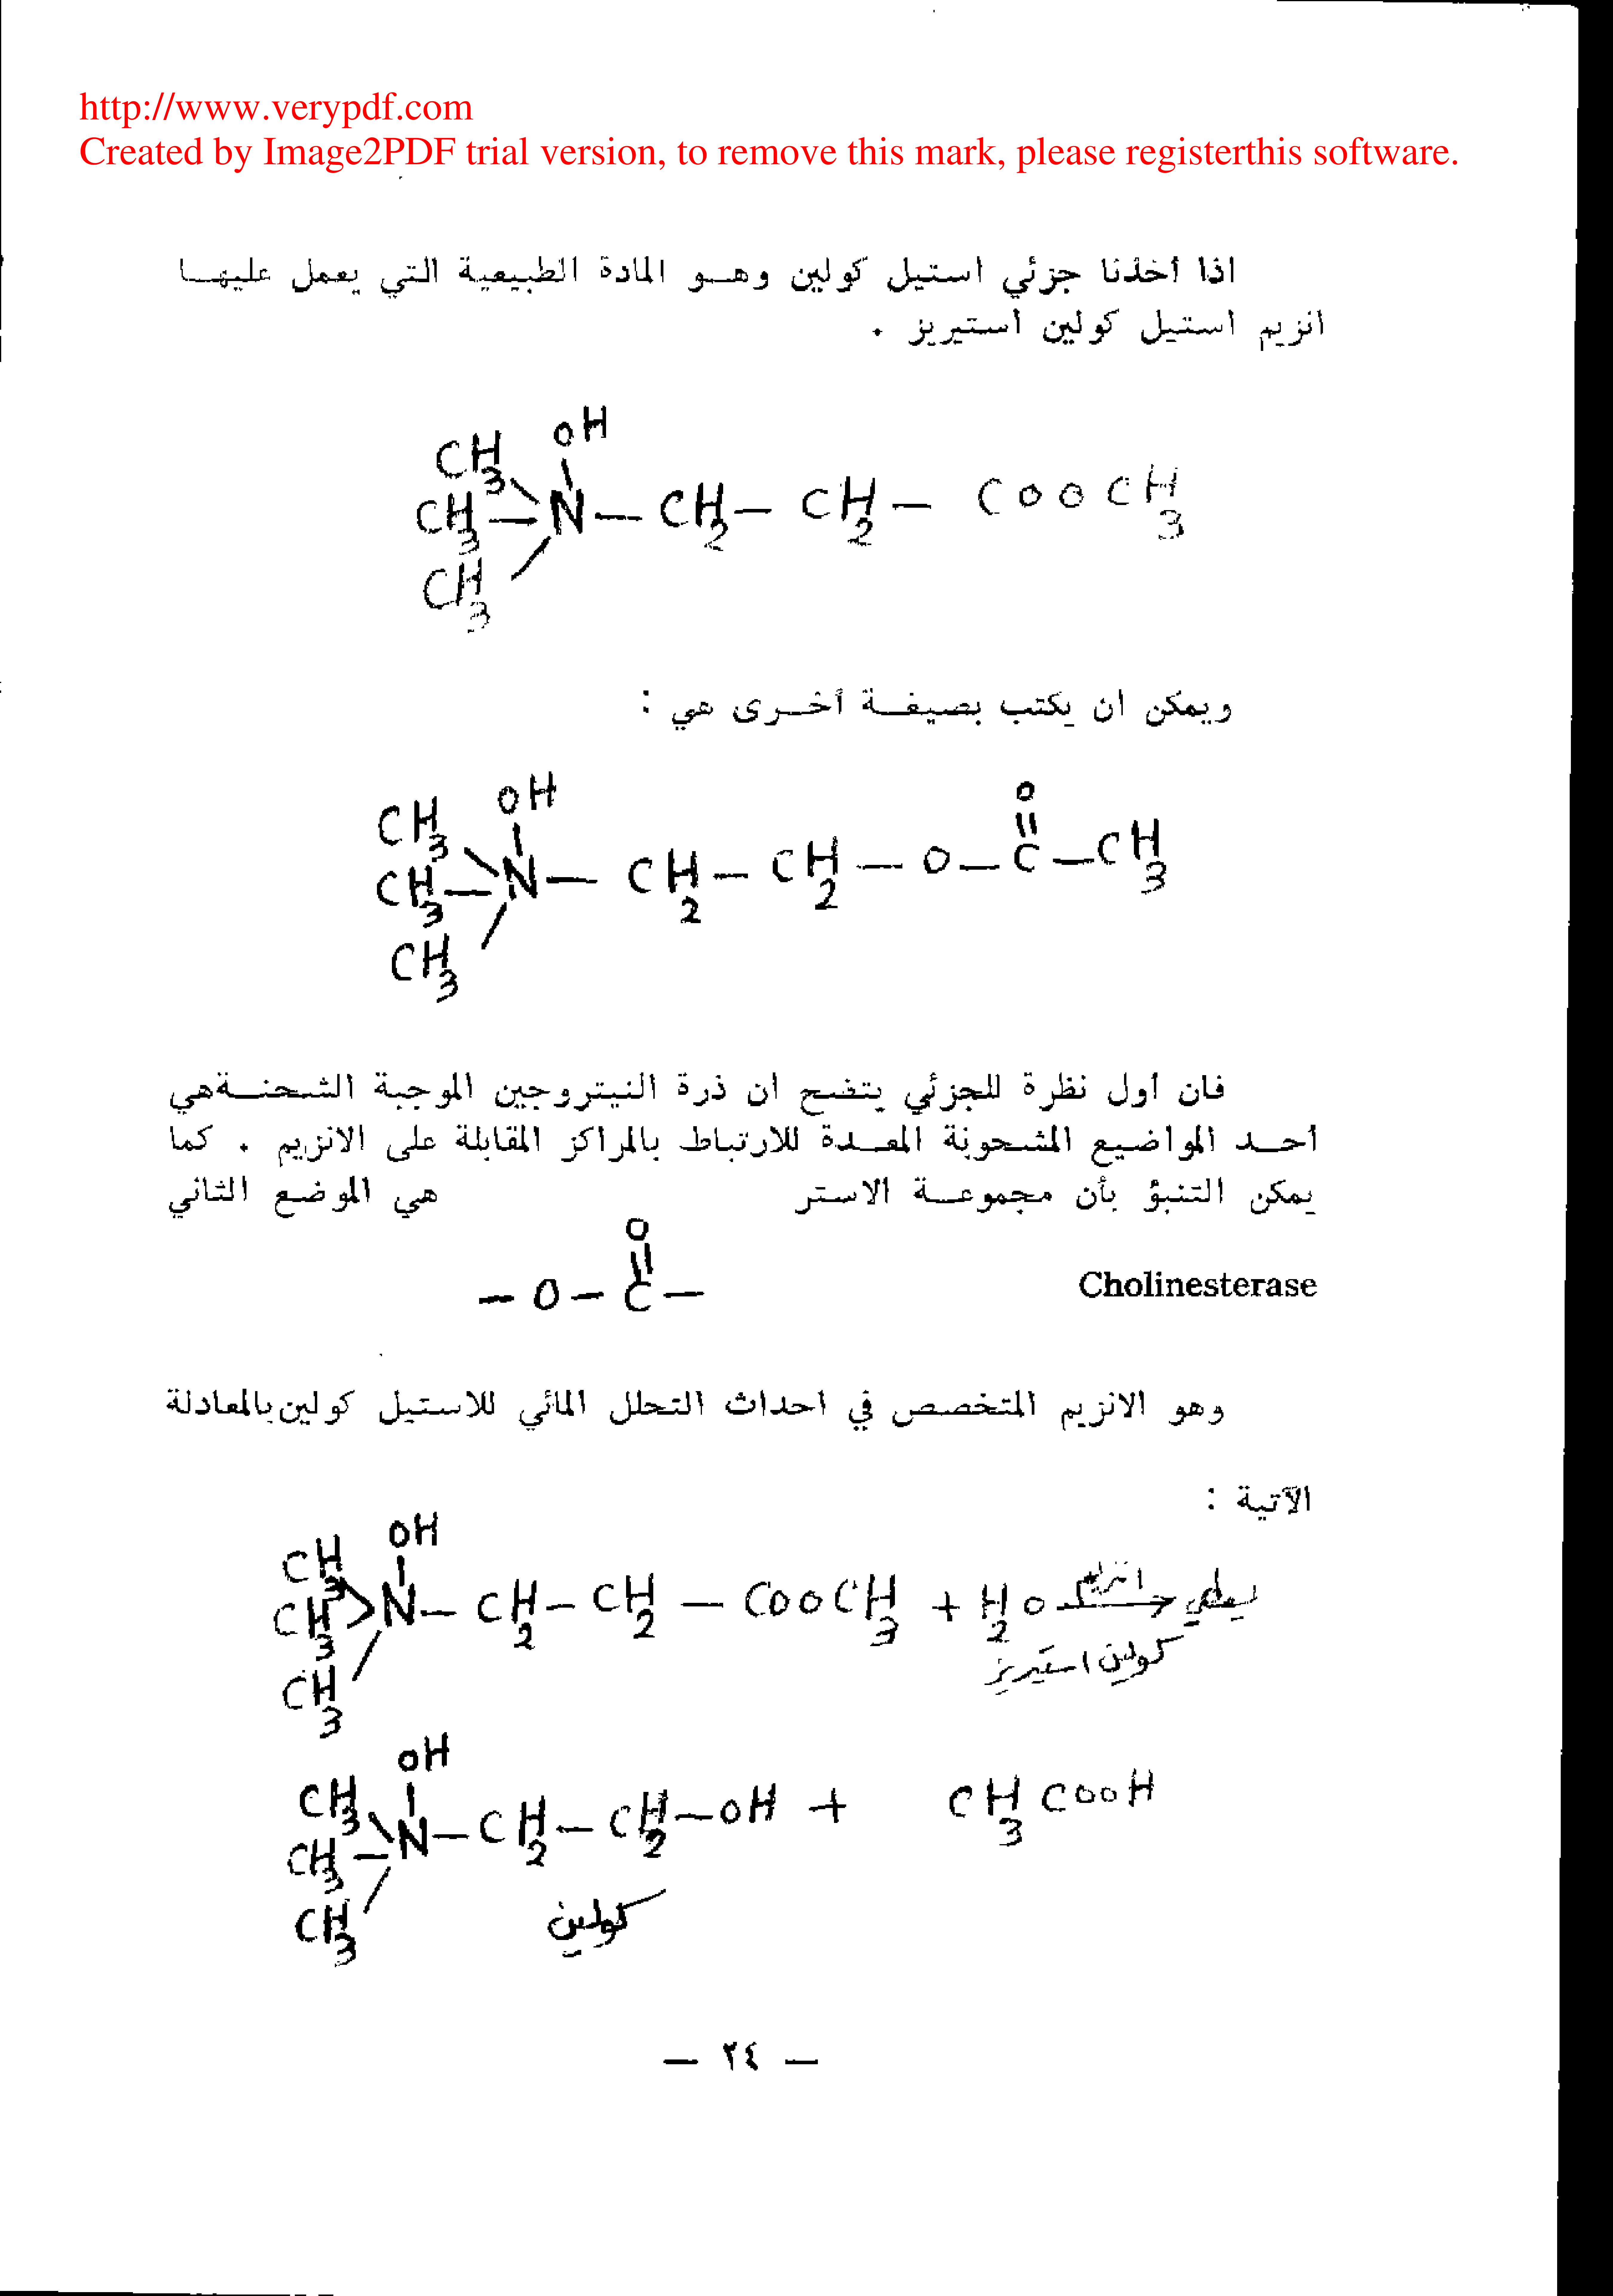 http://www.verypdf.com
Created by Image2PDF trial version, to remove this mark, please registerthis software.
اذا أخذنا جزئي استيل كولين وهـو المادة الطبيعية التي يعمل عليهـا
انزيم استيل كولين أستيريز .
CH3 OH
CH3 — N — CH2 — CH2 — COOCH3
CH3
ويمكن ان يكتب بصيغـة أخـرى هي :
CH3 OH O
CH3 — N — CH2 — CH2 — O — C — CH3
CH3
فان أول نظرة للجزئي يتضح ان ذرة النيتروجين الموجبة الشحنـة هي
أحـد المواضيع المشحونة المعـدة للارتباط بالمراكز المقابلة على الانزيم . كما
يمكن التنبؤ بأن مجموعـة الاستر هي الموضع الثاني
O
Cholinesterase — O — C —
وهو الانزيم المتخصص في احداث التحلل المائي للاستيل كولين بالمعادلة
الآتية :
CH3 OH
CH3 N — CH2 — CH2 — COOCH3 + H2O انزيم → يعطي
كولين استيريز
CH3
CH3 OH
CH3 — N — CH2 — CH2 — OH + CH3COOH
CH3
كولين
— ٢٤ —